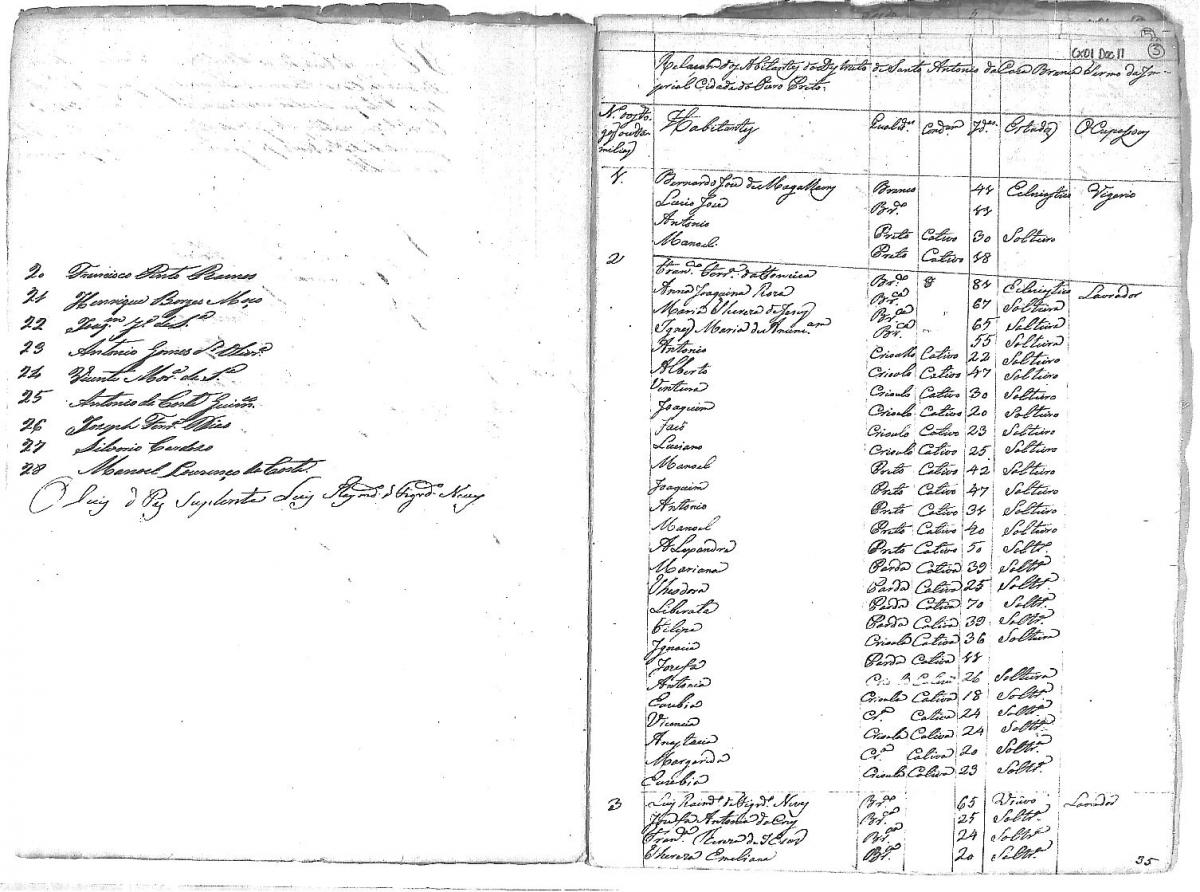 20 Francisco Pinto Ramos
21 Henrique Borges Moço
22 Joaqm Je de Sa
23 Antonio Gomes Olivra
24 Vicente Mor. da Sa
25 Antonio da Costa Guim.
26 Joseph Ferr. Dias
27 Silverio Cardozo
28 Manoel Lourenço da Costa
O Juiz d Pas Suplente Luis Raymdo d Figrdo Neves
CX01 Doc 11
5
3
Relacam dos Abitantes do Destrito de Santo Antonio da Caza Branca termo da Im-
perial Cidade do Ouro Preto.
No dos fo
gos ou fa
milias Habitantes Qualides Condam Ides Estados OCupassoys
1. Bernardo José de Magalhaens Branco 44 Eclesiastico Vigario
Lucio José Bro
Antonio Preto Cativo 30 Solteiro
Manoel Preto Cativo 18
2 Franco Ferr. da Br.o Eclesiastico Lavrador
Anna Joaquina Roza Br.ca 67 Solteira
Maria Thereza de Jesus Br.ca 65 Solteira
Ignes Maria da Br.ca 55 Solteira
Antonio Crioullo Cativo 22 Solteiro
Alberto Crioulo Cativo 47 Solteiro
Ventura Crioulo Cativo 30 Solteiro
Joaquim Crioulo Cativo 20 Solteiro
Crioulo Cativo 23 Solteiro
Luciano Crioulo Cativo 25 Solteiro
Manoel Preto Cativo 42 Solteiro
Joaquim Preto Cativo 47 Solteiro
Antonio Preto Cativo 34 Solteiro
Manoel Preto Cativo 40 Solteiro
Alexandre Preto Cativo 50 Soltr.
Mariana Parda Cativa 39 Soltr.
Theodora Parda Cativa 25 Soltr.
Liberata Parda Cativa 70 Soltr.
Felipa Parda Cativa 39 Soltr.
Ignacia Crioula Cativa 36 Solteira
Jozefa Parda Cativa
Antonia Cativa 26 Solteira
Euzebia Crioula Cativa 18 Soltra
Vicencia Cra Cativa 24 Soltr.
Anastacia Crioula Cativa 24 Soltra
Margarida Cra Cativa 20 Soltra
Euzebia Crioula Cativa 23 Soltr.
3 Luis Raimdo de Figrdo Neves Br.co 65 Viuvo Lavrador
Jozefa Antonia da Cruz Br.ca 25 Soltra
Franca Thereza de Jezus Br.ca 24 Soltra
Thereza Emeliana Br.ca 20 Soltra
35